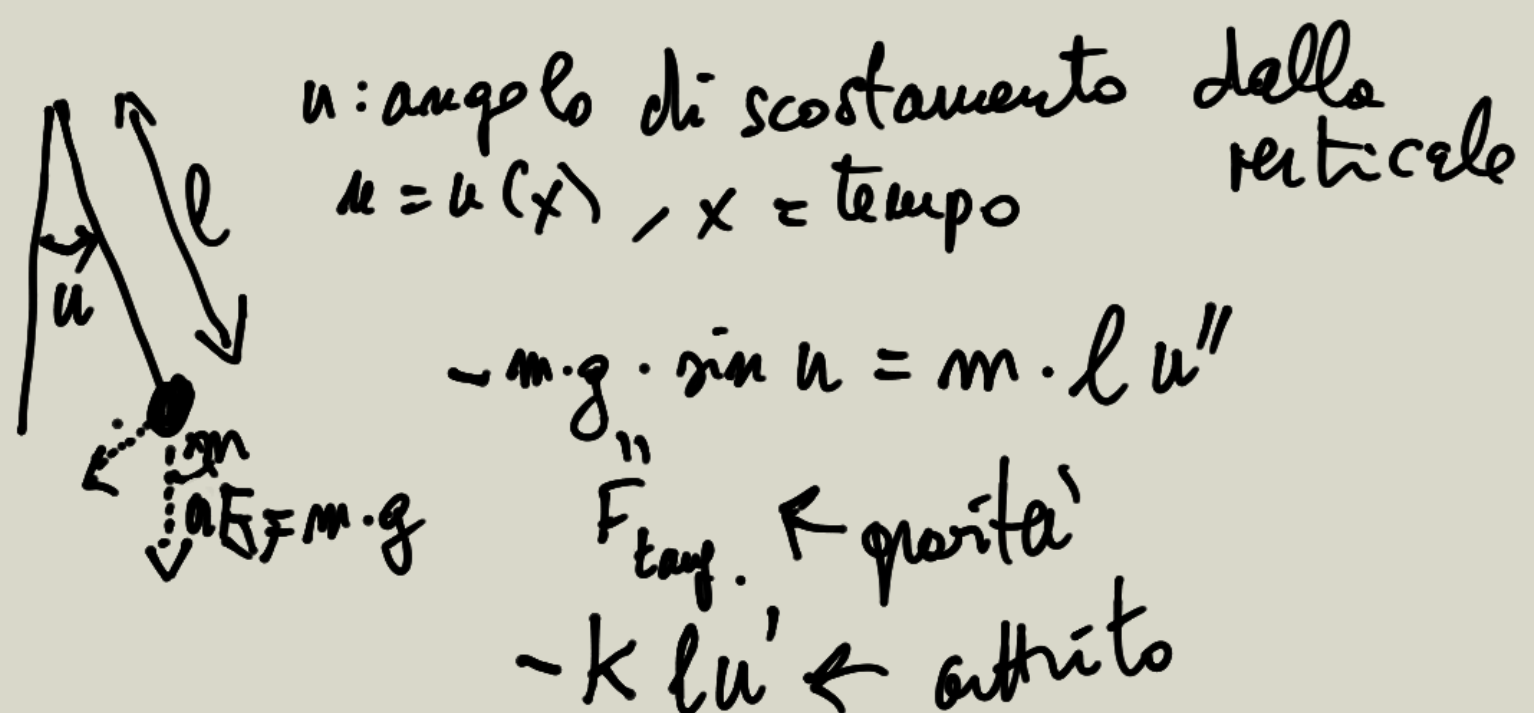 u : angolo di scostamento dalla verticale
u = u(x) , x = tempo
l
u
- m·g · sin u = m · l u''
m
F = m·g
"
F tang. ← gravità
- k l u' ← attrito